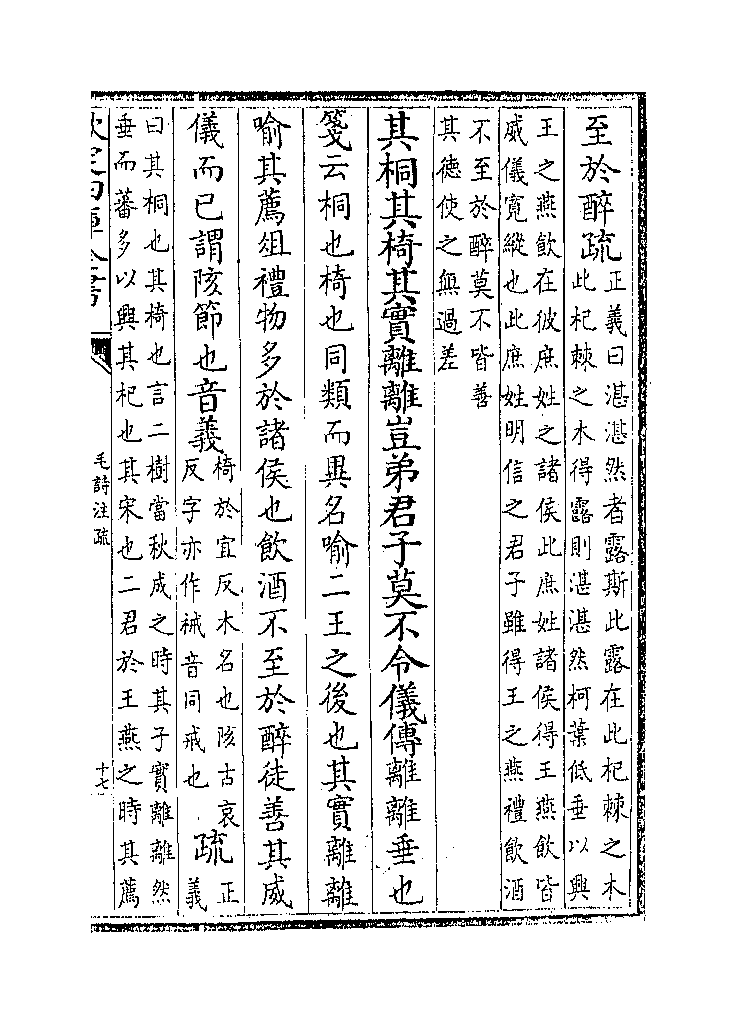 至於醉疏
正義曰湛湛然者露斯此露在此杞棘之木
此杞棘之木得露則湛湛然柯葉低垂以興
王之燕飲在彼庶姓之諸侯此庶姓諸侯得王燕飲皆
威儀寛縱也此庶姓明信之君子雖得王之燕禮飲酒
不至於醉莫不皆善
其德使之無過差
其桐其椅其實離離豈弟君子莫不令儀傳離離垂也
箋云桐也椅也同類而異名喻二王之後也其實離離
喻其薦俎禮物多於諸侯也飲酒不至於醉徒善其威
儀而已謂陔節也音義
椅於宜反木名也陔古哀
反字亦作祴音同戒也
疏
正
義
曰其桐也其椅也言二樹當秋成之時其子實離離然
垂而蕃多以興其杞也其宋也二君於王燕之時其薦
欽定四庫全書
毛詩注疏
十七